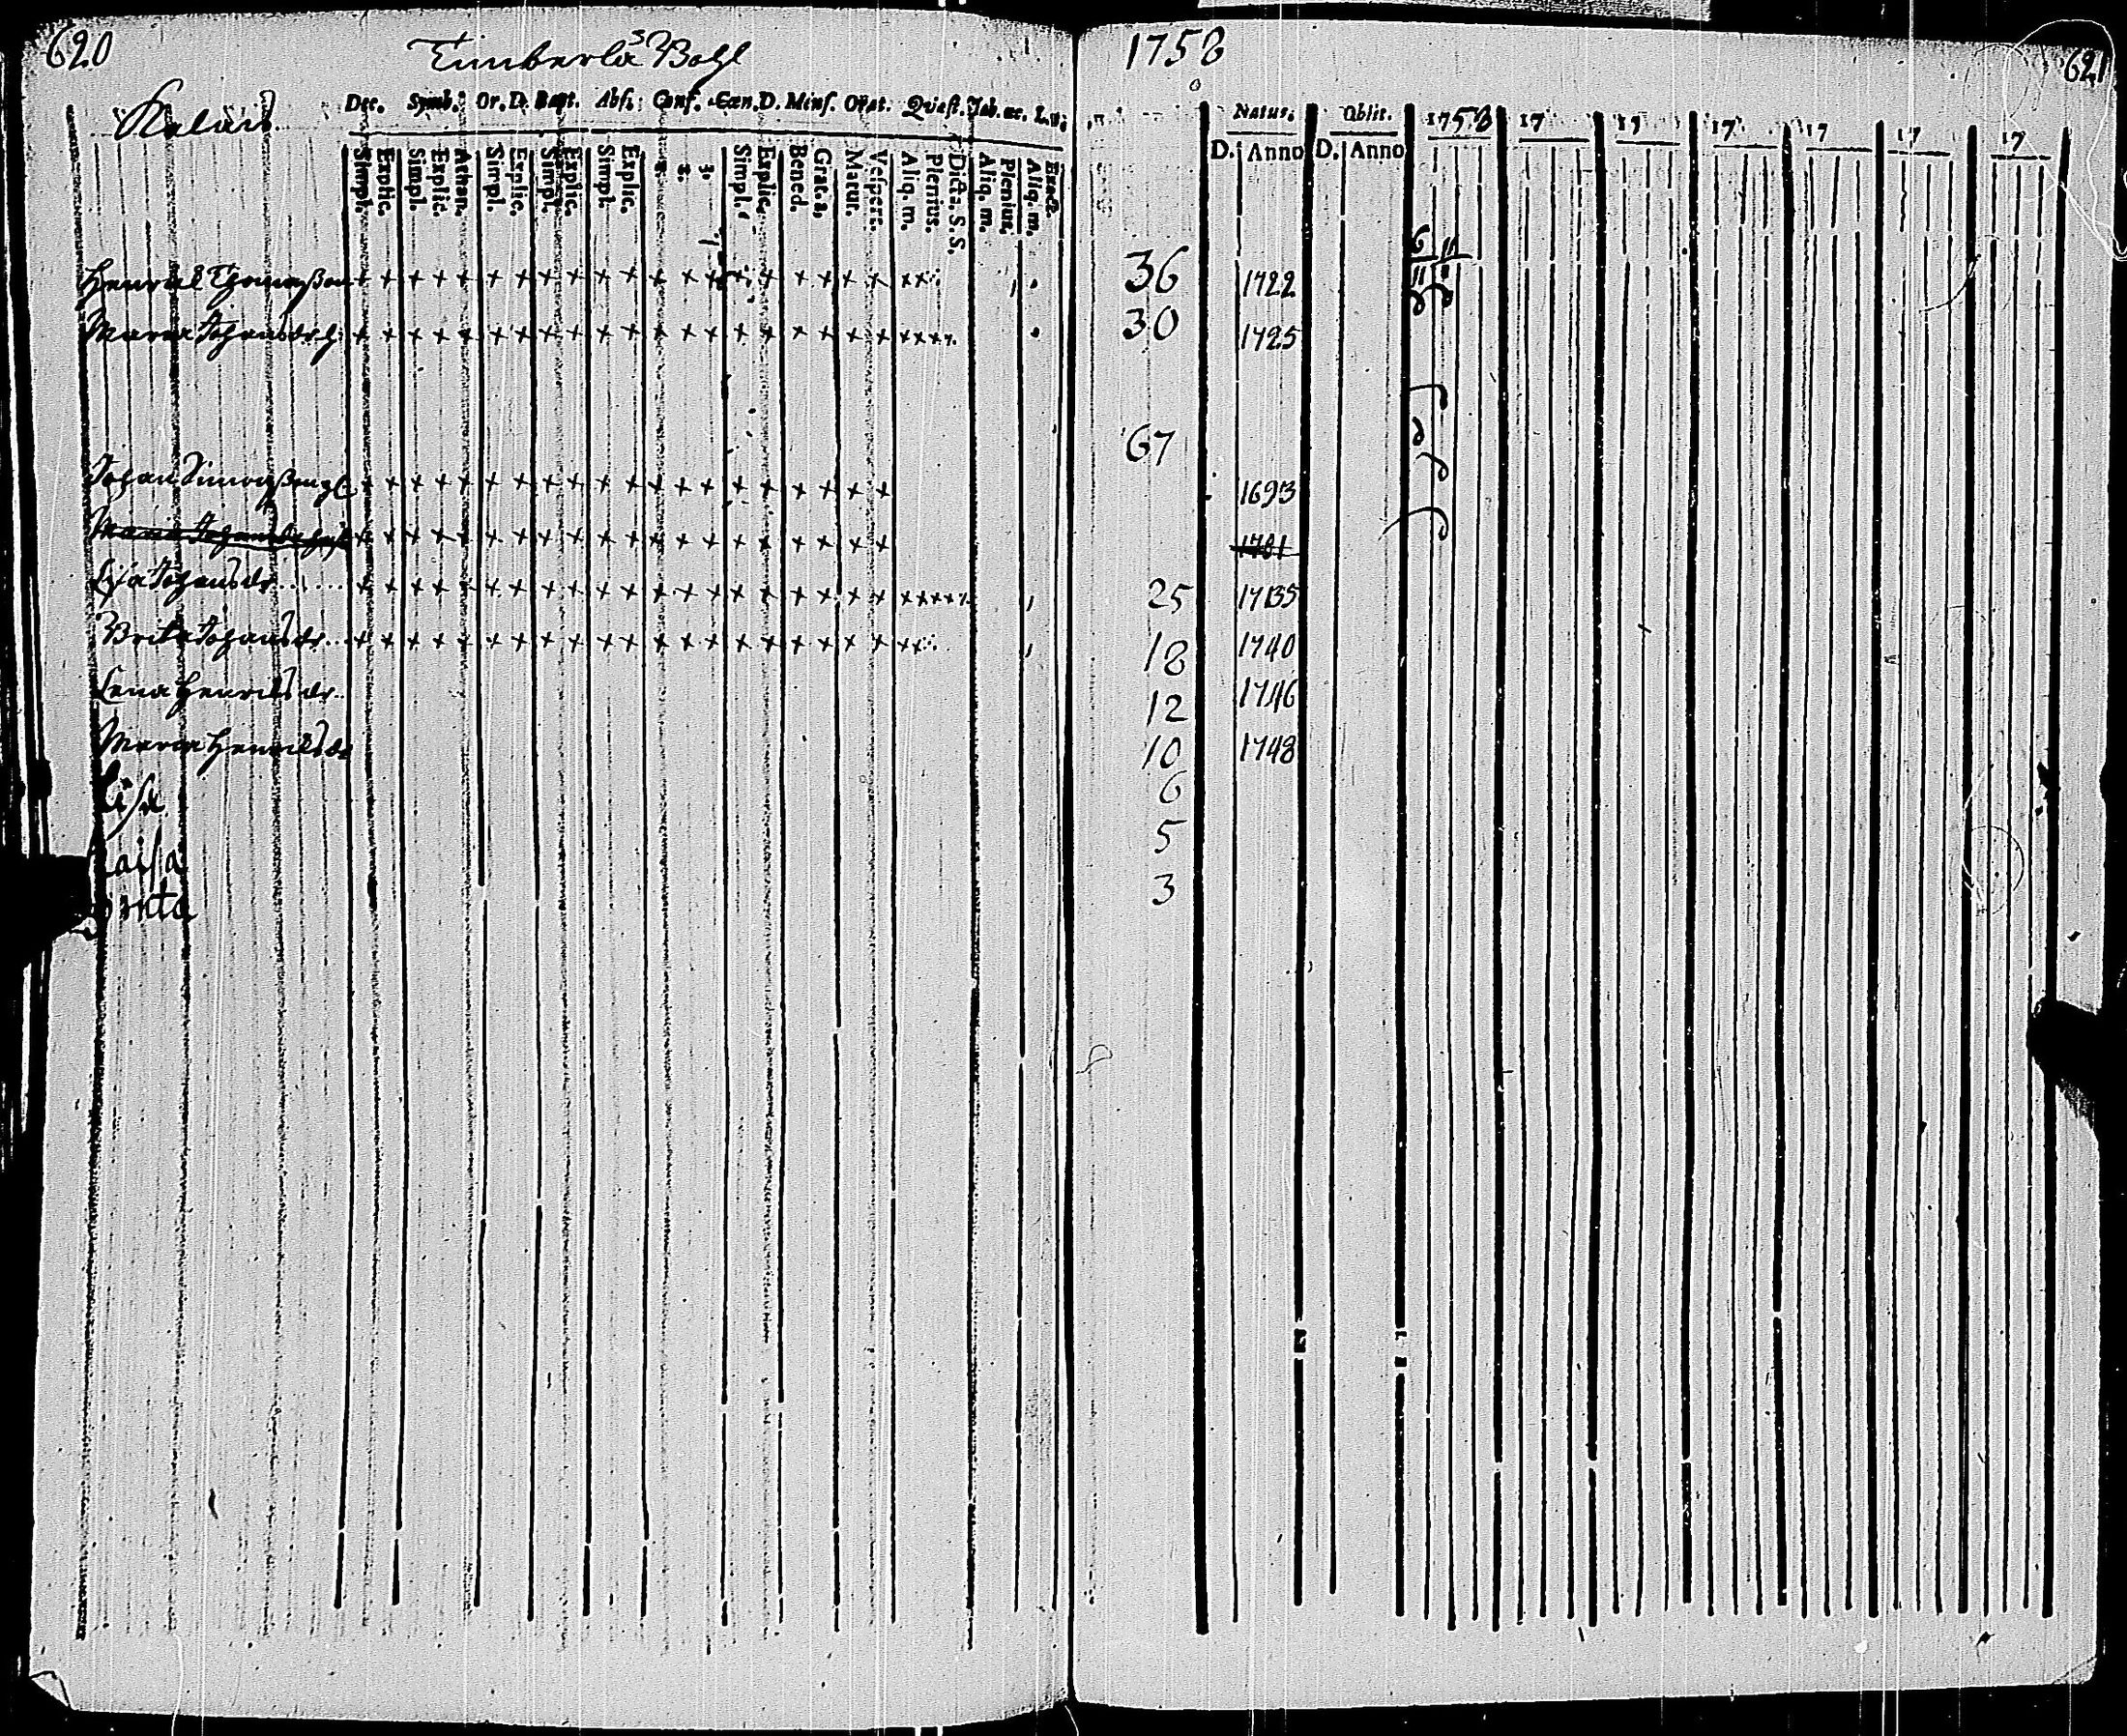 620
Timberla Bohl
1758
621
Dec. Symb. Or. D. Bapt. Abs. Conf. Cœn. D. Mens. Orat. Quæst. Tab. œc. L. v.
Simpl. Explic. Simpl. Explic. Athan. Simpl. Explic. Simpl. Explic. Simpl. Explic. 2. 3. Simpl. Explic. Bened. Grat. a. Matut. Vespert. Aliq. m. Plenius. Dicta S. S. Aliq. m. Plenius. Aliq. m. Exact.
Natus. Obiit. 1758 17 17 17 17 17 17
D. Anno D. Anno
Henrich Thomasson 36 1722
Maria Johansdr h. 30 1725
67
Johan Simonsson 1693
Maria Johansdr 1701
Lisa Johansdr 25 1735
Brita Johansdr 18 1740
Lena Henrichsdr 12 1746
Maria Henrichsdr 10 1748
Lisa 6
Caisa 5
Brita 3